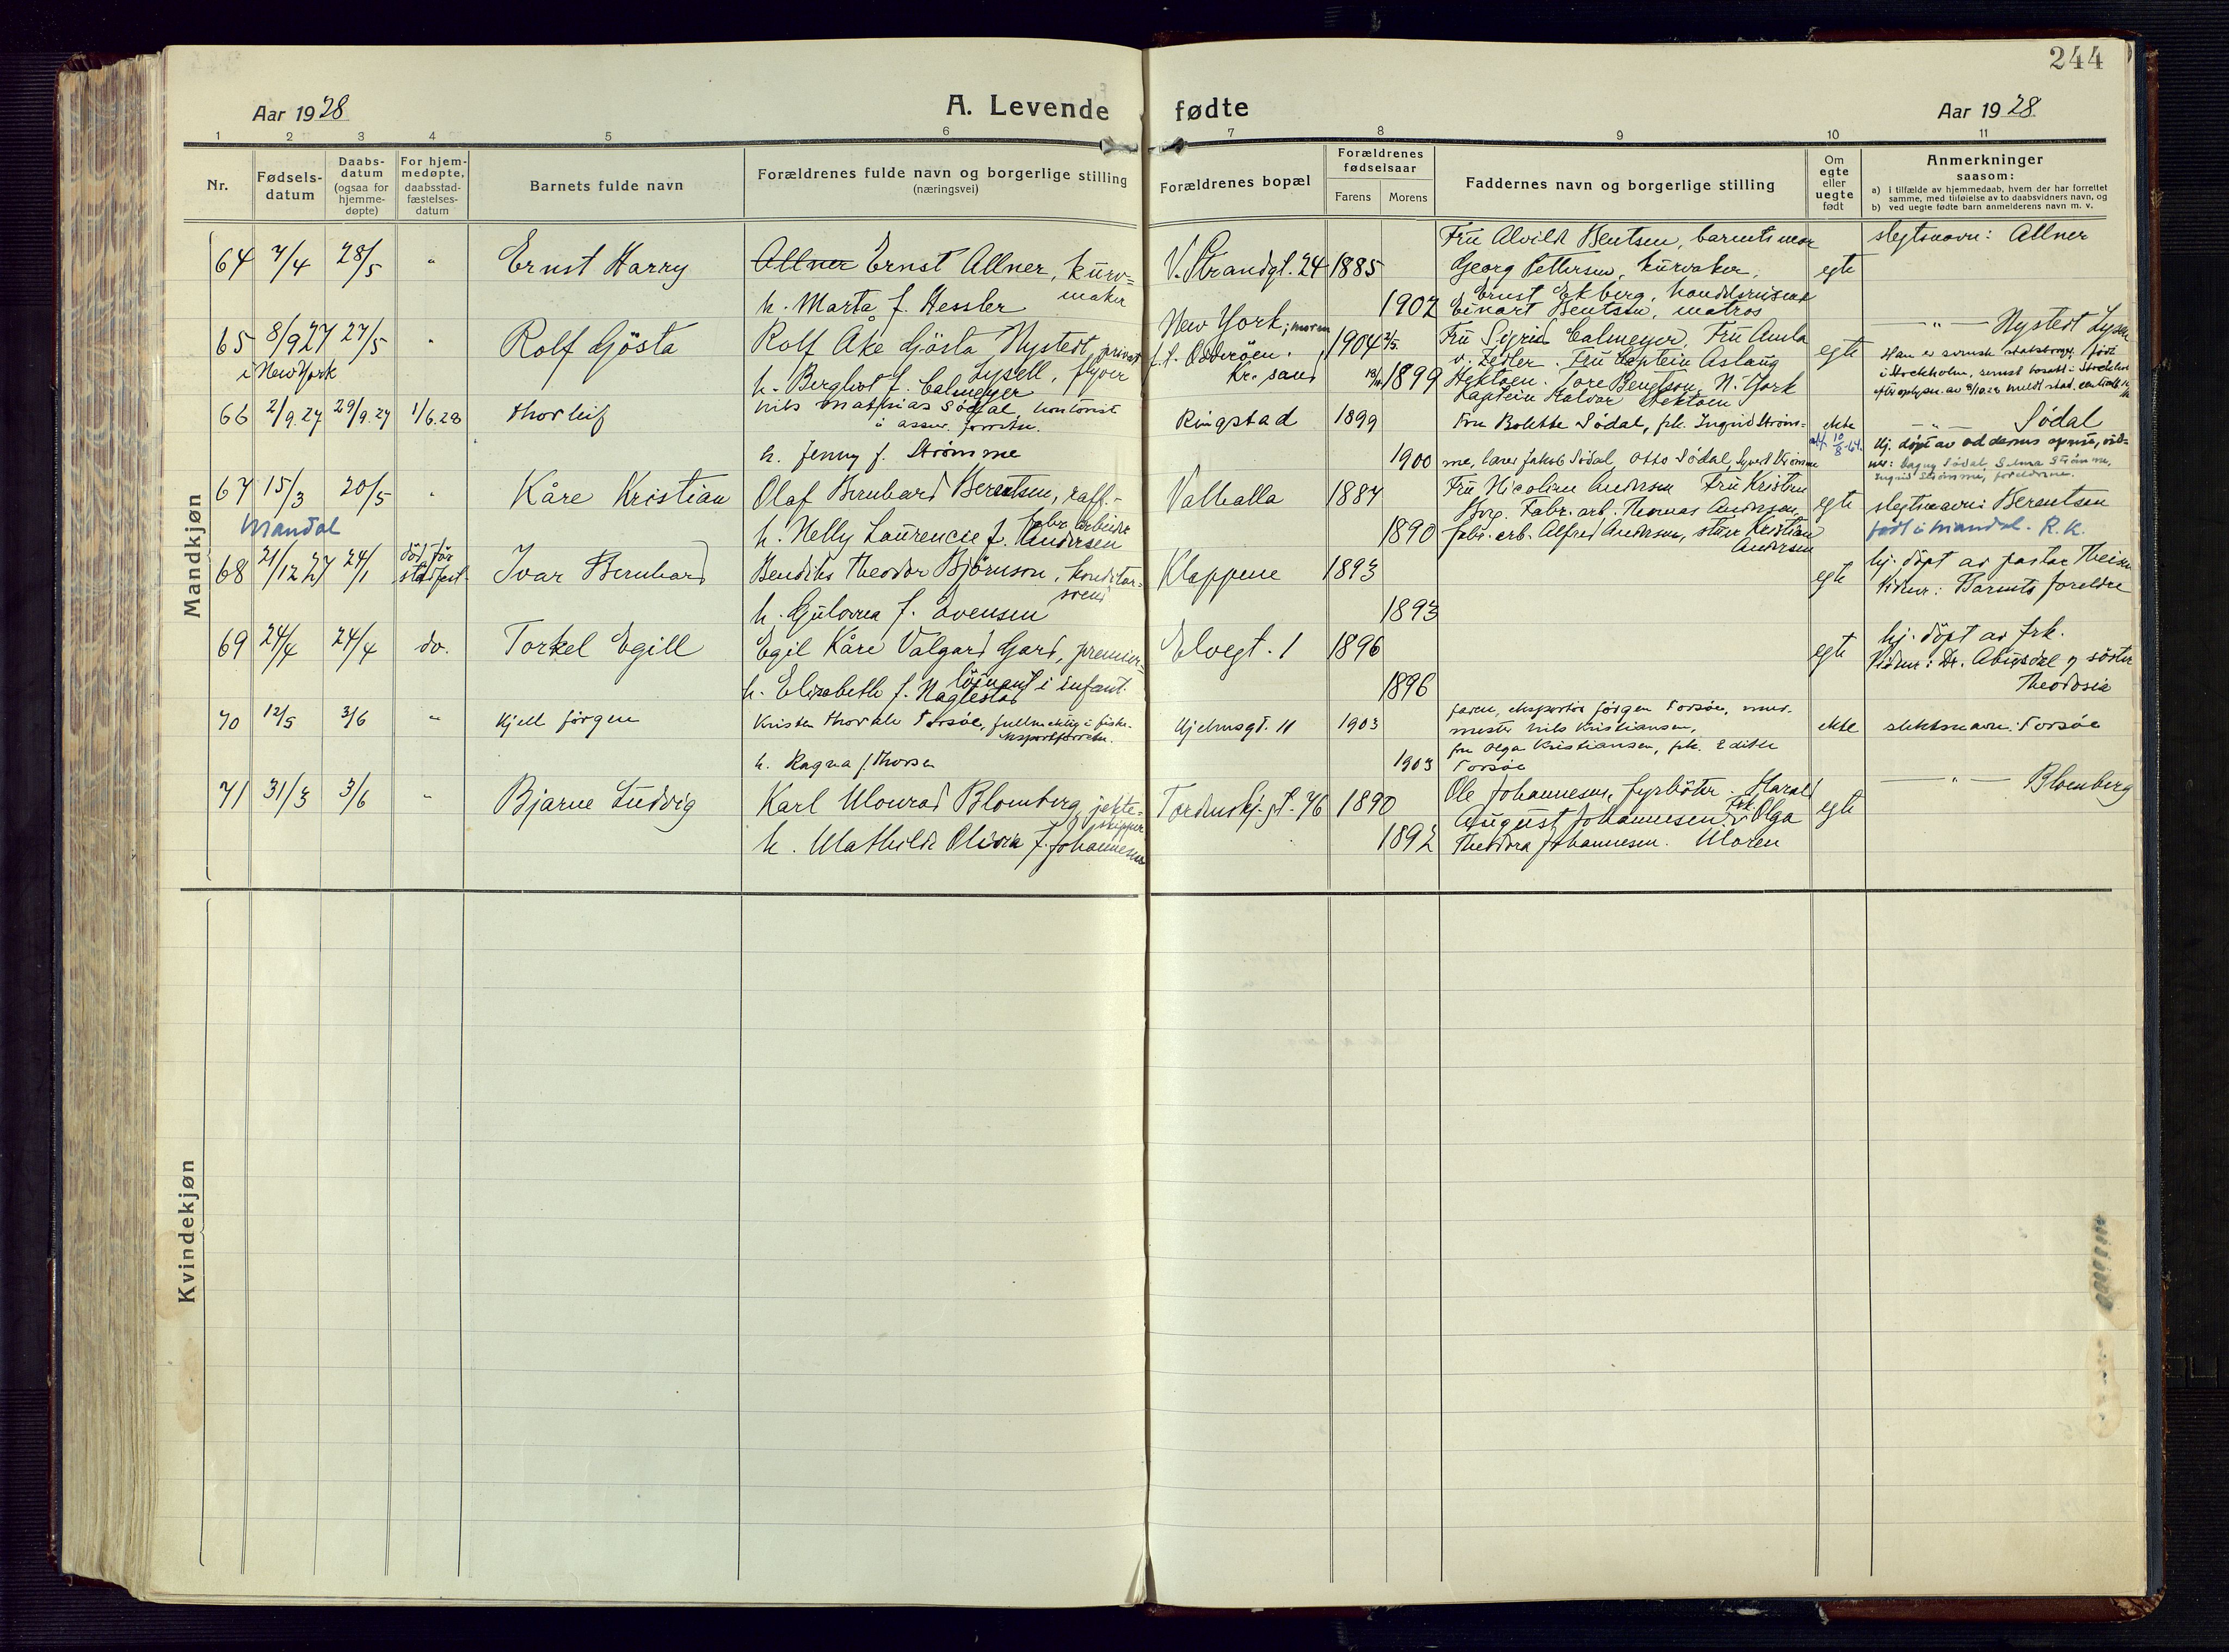 244
Aar 1928
A. Levende
fødte
Aar 1928
1 2 3 4 5 6 7 8 9 10 11
Nr.
Fødsels-
datum
Daabs-
datum
(ogsaa for
hjemme-
døpte)
For hjem-
medøpte,
daabsstad-
fæstelses-
datum
Barnets fulde navn
Forældrenes fulde navn og borgerlige stilling
(næringsvei)
Forældrenes bopæl
Forældrenes
fødselsaar
Farens Morens
Faddernes navn og borgerlige stilling
Om
egte
eller
uegte
født
Anmerkninger
saasom:
a) I tilfælde av hjemmedaab, hvem der har forrettet
samme, med tilføielse av to daabsvidners navn, og
b) ved uegte fødte barn anmelderens navn m. v.
Mandkjøn
64 7/4 28/5 " Ernst Harry
Allner Ernst Allner, kurv=
maker
h. Marta f. Hessler
V. Strandgt. 24 1885
1902
Fru Alvilde Bentsen, barnets mor
Georg Pettersen, kurvmaker,
Ernst Ekberg, handelsreisende
Einart Bentsen, matros
egte
slegtsnavn: Allner
65 8/9 27 27/5 " Rolf Gösta
i New York
Rolf Åke Gösta Nystedt, privat
Lysell, flyver
h. Bergliot f. Calmeyer
New York; moren
f. t. Odderöen.
Kr. sand
1904 2/5.
1899
Fru Sigrid Calmeyer, Fru Amla
v. Zedler. Fru Kaptein Aslaug
Hektoen. Tore Bengtson, N. York
Kaptein Halvor Hektoen
egte
— " — Nystedt Lysell
Han er svensk statsborger, född
i Stockholm, senest bosatt i Stockholm
66 2/9.27 29/9.27 1/6.28 Thorleif
Nils Mathias Sødal, kontorist
i assur. forretn.
h. Jenny f. Strømme
Ringstad 1899
1900
Fru Bolette Sødal, frk. Ingrid Strøm-
me, lærer Jakob Sødal, Otto Sødal, Syvert Strømme
ekte
att. 10/8-64.
— " — Sødal
Hj. døpt av
ner: Dagny Sødal, Selma Strømme,
Ingrid Strømme, foreldrene.
67 15/3 20/5 " Kåre Kristian
Mandal
Olaf Bernhard Berentsen, raff.-
fabr. arbeider
h. Nelly Laurencie f. Andersen
Valhalla 1887
1890
Fru Nicoline Andersen Fru Kristine
Borg. Fabr. arb. Thomas Andersen,
fabr. arb. Alfred Andersen, stuer Kristian
Andersen
egte
slegtsnavn: Berentsen
født i Mandal. R. K.
68 21/12 27 24/1 död før
stadfest. Ivar Bernhard
Bendiks Theodor Björnson, konditor-
svend
h. Gulovea f. Svensen
Klappene 1893
1893
egte
hj. döpt av pastor Theisen
Vidner: Barnets foreldre
69 24/4 24/4 do. Torkel Egill
Egil Kåre Valgard Gard, premier-
löinant i infant.
h. Elisabeth f. Naglestad
Elvegt. 1 1896
1896
egte
hj. döpt av frk.
Vidner: Dr. Abigsdal og søster
Theodosia
70 12/5 3/6 " Kjell Jörgen
Kristen Thorvald Torsøe, fullmektig i fiske-
eksportforretn.
h. Ragna f. Thorsen
Hjelmsgt. 11 1903
1903
faren, eksportør Jörgen Torsøe, mur-
mester Nils Kristiansen,
fru Olga Kristiansen, frk. Edith
Torsøe
ekte
slektsnavn: Torsøe
71 31/3 3/6 " Bjarne Ludvig
Karl Monrad Blomberg, jekte-
skipper
h. Mathilde Olivia f. Johannesen
Tordenskj. gt. 76 1890
1892
Ole Johannesen, fyrböter. Harald
August Johannesen. Frk. Olga
Theodora Johannesen. Moren
egte
— " — Blomberg
Kvindekjøn